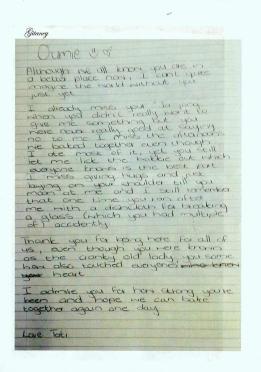 Gitaney
Oumie
Although we all know you are in
a better place now, I can't quite
imagine the world without you
just yet
I already miss you
when you didn't really want to
give me something but you
were never really good at saying
no to me I miss the afternoons
we baked together even though
I ate most of it yet you still
let me lick the bottle out which
everyone knows is the best part
I miss giving hugs and just
laying on your shoulder till you
moan at me and I still remember
that one time you ran after
me with a dishcloth for breaking
a glass (which you had multiple
of) accidently.
Thank you for being here for all of
us, even though you were known
as the cranky old lady, you some
how also touched everyones
heart
I admire you for how strong you've
been and hope we can bake
together again one day
Love Tati